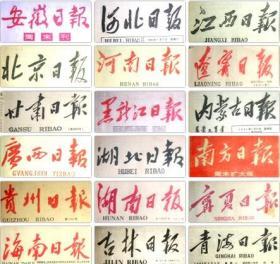 安徽日报
周末刊
河北日报
HEBEI RIBAO
江西日报
JIANGXI RIBAO
北京日報
河南日報
HENAN RIBAO
遼寧日報
LIAONING RIBAO
甘肃日報
GANSU RIBAO
黑龙江日報
内蒙古日報
廣西日報
GVANGJSIH YIZBAU
湖北日報
HUBEI RIBAO
南方日報
周末扩大版
貴州日報
GUIZHOU RIBAO
湖南日報
HUNAN RIBAO
寧夏日報
NINGXIA RIBAO
海南日报
HAINAN RIBAO
吉林日報
JILIN RIBAO
青海日報
QINGHAI RIBAO